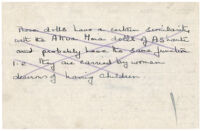 These dolls have a certain similarity
with the Akua Mma dolls of Ashanti
and probably have the same function
i.e. they are carried by women
desirous of having children